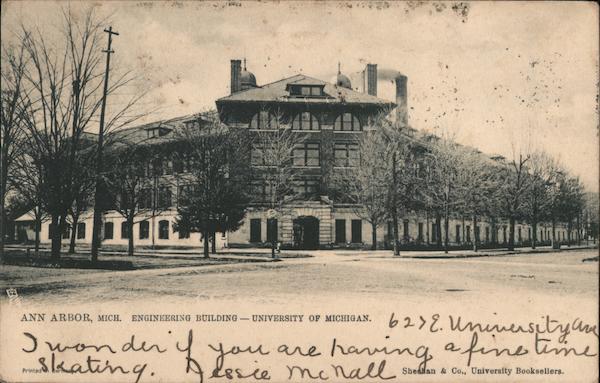 ANN ARBOR, MICH. ENGINEERING BUILDING — UNIVERSITY OF MICHIGAN.
627 E. University Av
I wonder if you are having a fine time
skating. Jessie McNall
Printed in
Sheehan & Co., University Booksellers.